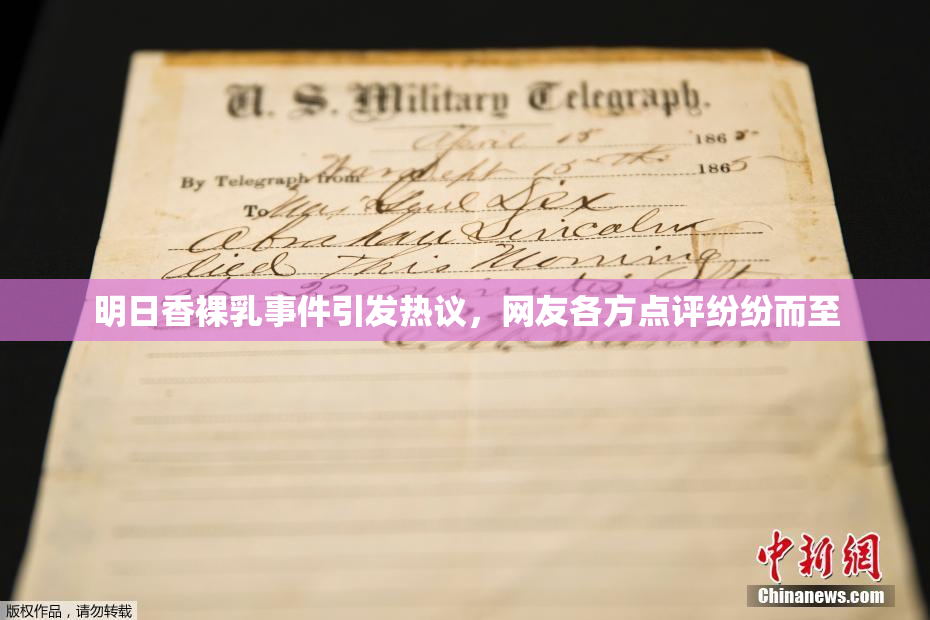 U. S. Military Telegraph.
April 15 1865
By Telegraph from War Dept 15th 1865
To Maj Genl Dix
Abraham Lincoln
died This Morning
at 22 minutes after
明日香裸乳事件引发热议，网友各方点评纷纷而至
E. M. Stanton
中新网
Chinanews.com
版权作品，请勿转载